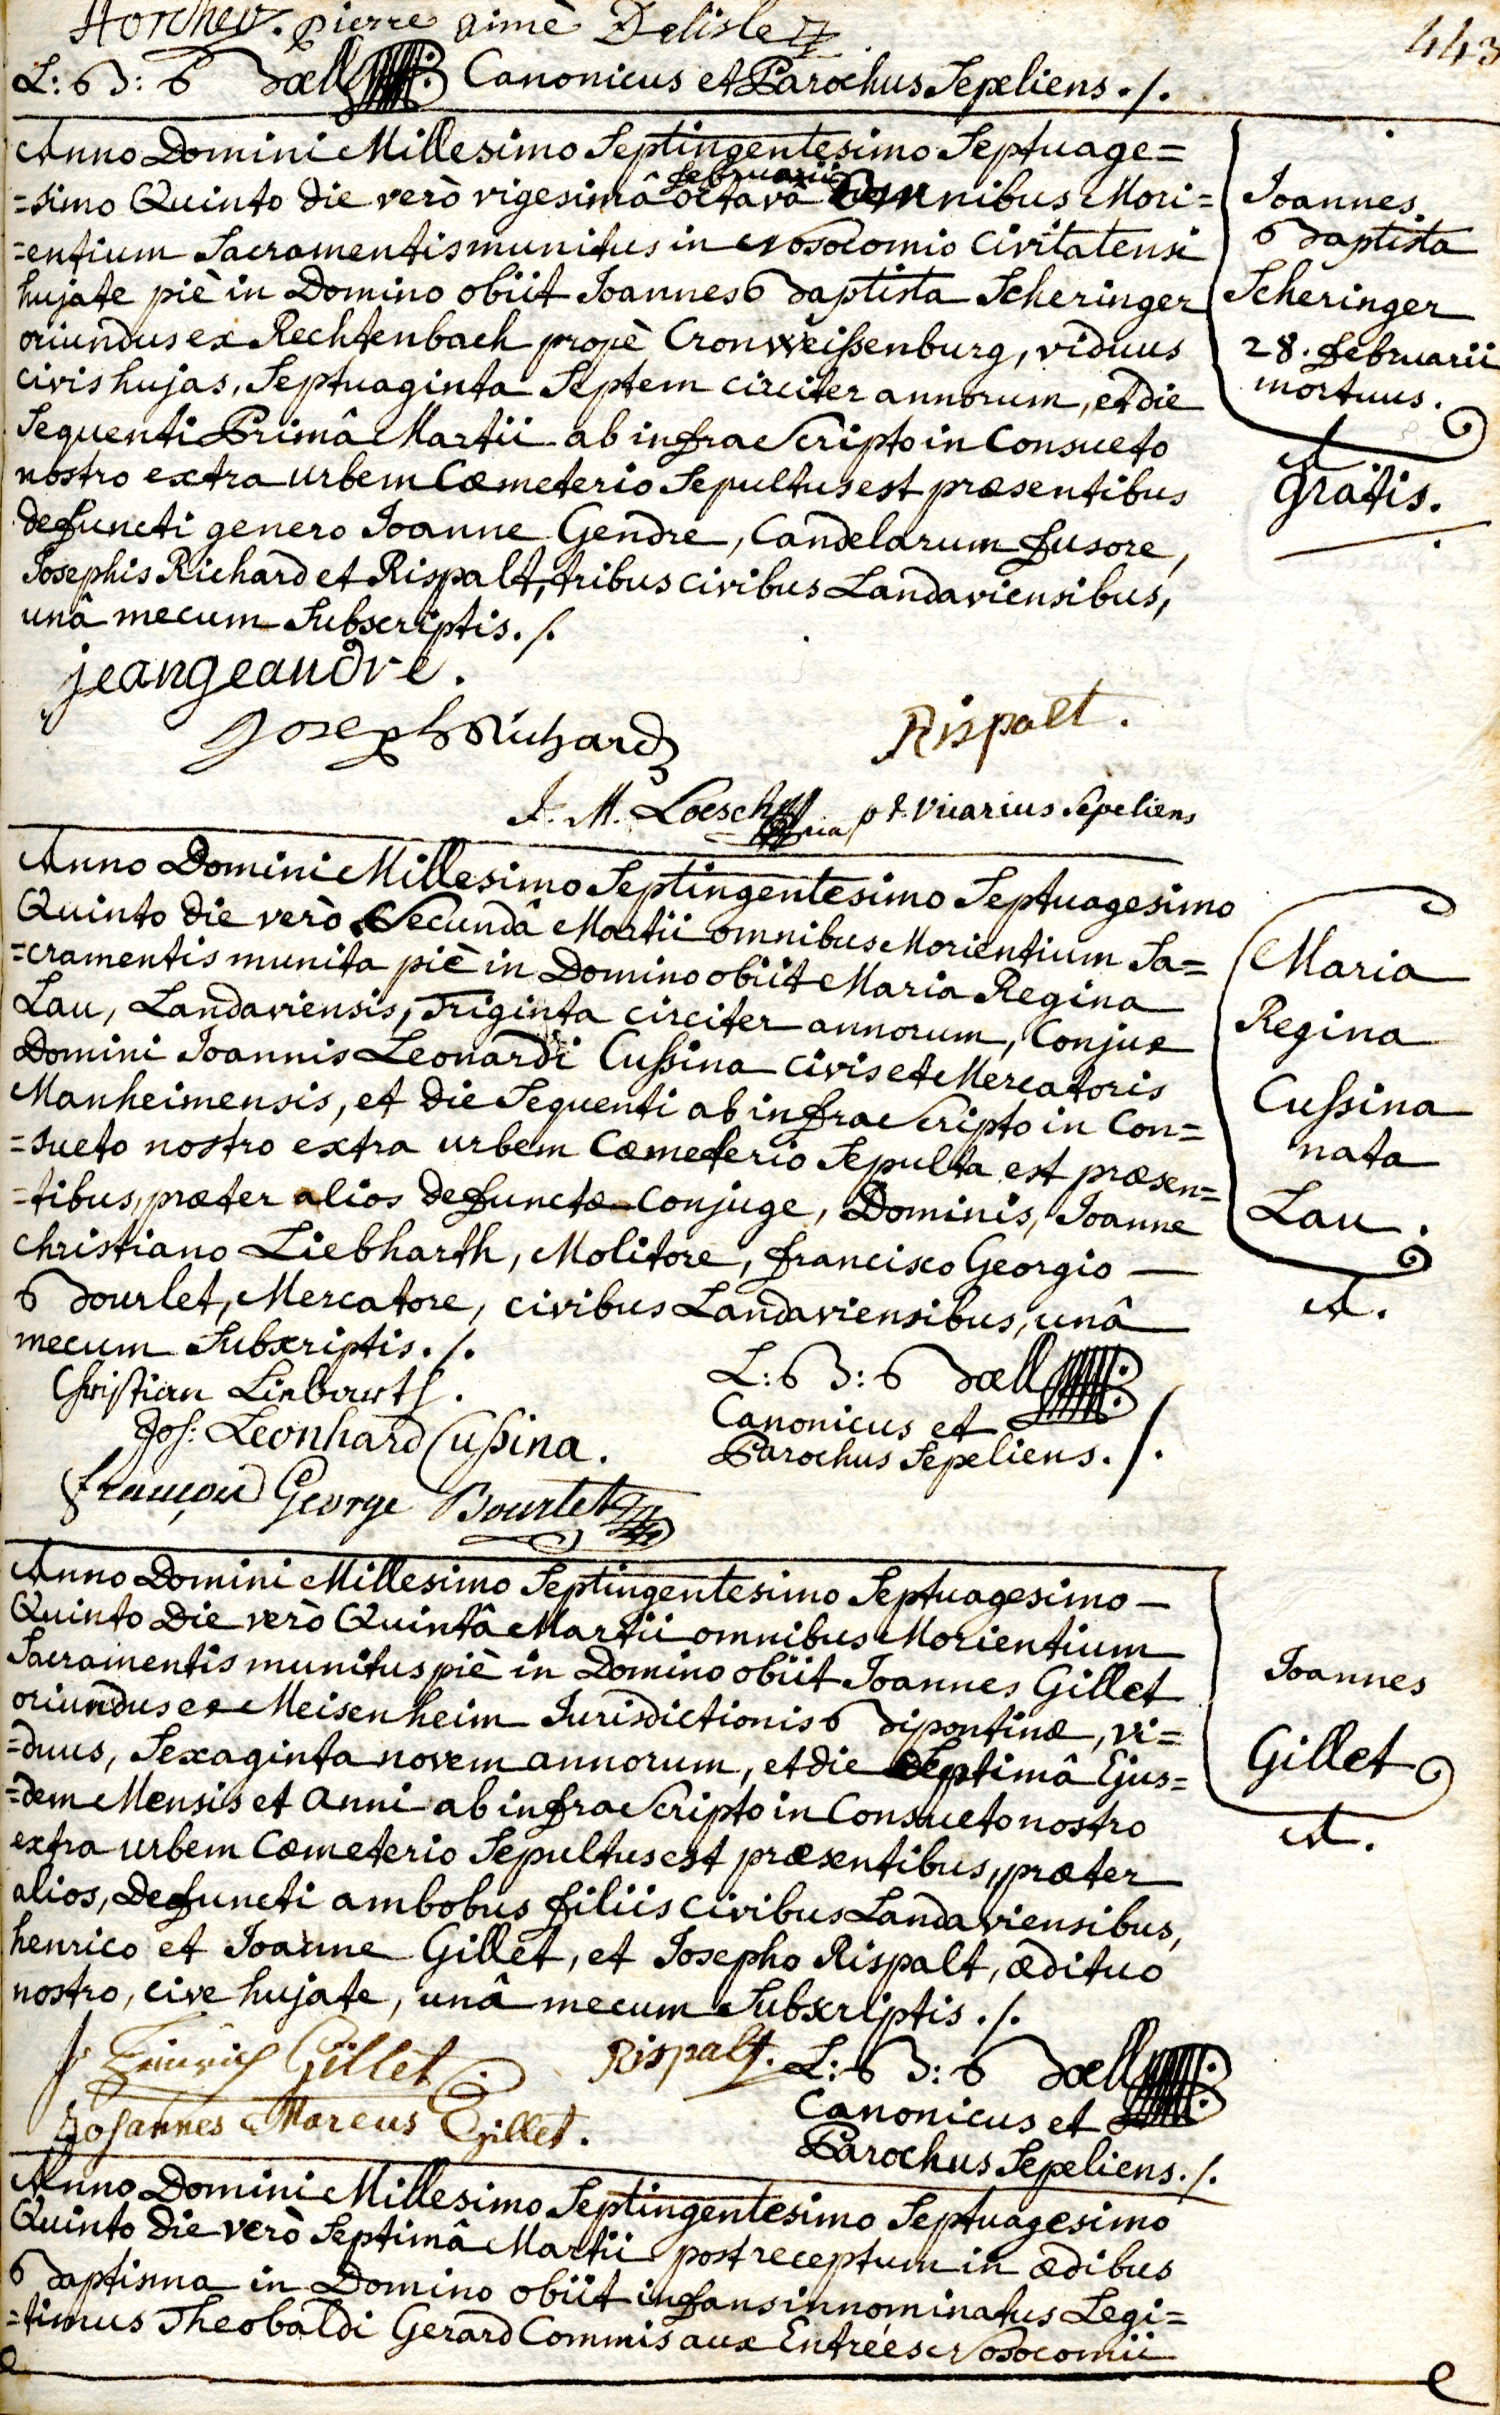 Horcher. pierre aimé Delisle
443
L: B: Boell Canonicus et Parochus Sepeliens ./.
Anno Domini Millesimo Septingentesimo Septuage=
=simo Quinto die verò vigesimâ octavâ februarii omnibus Mori=
=entium Sacramentis munitus in Nosocomio Civitatensi
hujate piè in Domino obiit Joannes Baptista Scheringer
oriundus ex Rechtenbach propè Cronweissenburg, viduus
civis hujas, Septuaginta Septem circiter annorum, et die
Sequenti Primâ Martii ab infra Scripto in Consueto
nostro extra urbem Cœmeterio Sepultus est præsentibus
defuncti genero Joanne Gendre, Candelarum fusore,
Josephis Richard et Rispalt, tribus civibus Landaviensibus,
unâ mecum Subscriptis ./.
Joannes
Baptista
Scheringer
28. februarii
mortuus.
A
gratis.
jean geandre.
Joseph Richard
Rispalt.
J. M. Loesch p.t. vicarius Sepeliens
Anno Domini Millesimo Septingentesimo Septuagesimo
Quinto die verò Secundâ Martii omnibus Morientium Sa=
=cramentis munita piè in Domino obiit Maria Regina
Lau, Landaviensis, Triginta circiter annorum, Conjux
Domini Joannis Leonardi Cussina Civis et Mercatoris
Manheimensis, et die Sequenti ab infra Scripto in Con=
=sueto nostro extra urbem Cœmeterio Sepulta est præsen=
=tibus, præter alios defunctæ Conjuge, Dominis, Joanne
Christiano Liebharth, Molitore, francisco Georgio —
Bourlet, Mercatore, civibus Landaviensibus, unâ
mecum Subscriptis ./.
Maria
Regina
Cussina
nata
Lau.
A.
Christian Liebharth.
Joh: Leonhard Cussina.
François George Bourlet
L: B: Boell
Canonicus et
Parochus Sepeliens ./.
Anno Domini Millesimo Septingentesimo Septuagesimo —
Quinto Die verò Quintâ Martii omnibus Morientium
Sacramentis munitus piè in Domino obiit Joannes Gillet
oriundus ex Meisenheim Jurisdictionis Bipontinæ, vi=
=duus, Sexaginta novem annorum, et die Septimâ Ejus=
=dem Mensis et Anni ab infra Scripto in Consueto nostro
extra urbem Cœmeterio Sepultus est præsentibus, præter
alios, Defuncti ambobus filiis civibus Landaviensibus,
henrico et Joanne Gillet, et Josepho Rispalt, ædituo
nostro, cive hujate, unâ mecum Subscriptis ./.
Joannes
Gillet
A.
Heinrich Gillet
Johannes Marcus Gillet.
Rispalt.
L: B: Boell
Canonicus et
Parochus Sepeliens ./.
Anno Domini Millesimo Septingentesimo Septuagesimo
Quinto die verò Septimâ Martii post receptum in ædibus
Baptisma in Domino obiit infans innominatus Legi=
=timus Theobaldi Gerard Commis aux Entrées Nosocomii